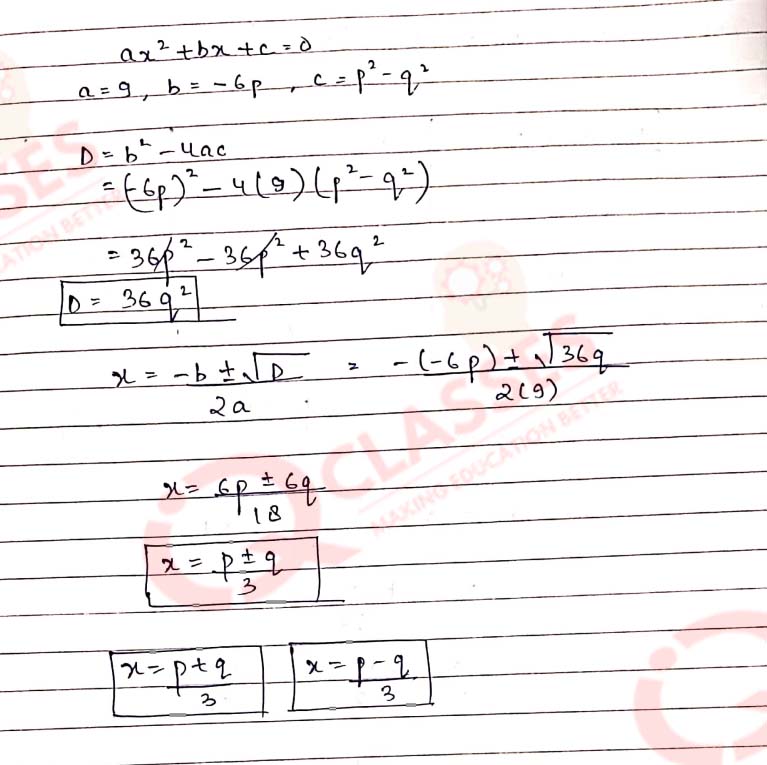 ax² + bx + c = 0
a = 9, b = -6p, c = p² - q²
D = b² - 4ac
= (-6p)² - 4(9)(p² - q²)
= 36p² - 36p² + 36q²
D = 36q²
x = -b ± √D / 2a = -(-6p) ± √36q / 2(9)
x = 6p ± 6q / 18
x = p ± q / 3
x = p + q / 3 x = p - q / 3
CLASSES
MAKING EDUCATION BETTER